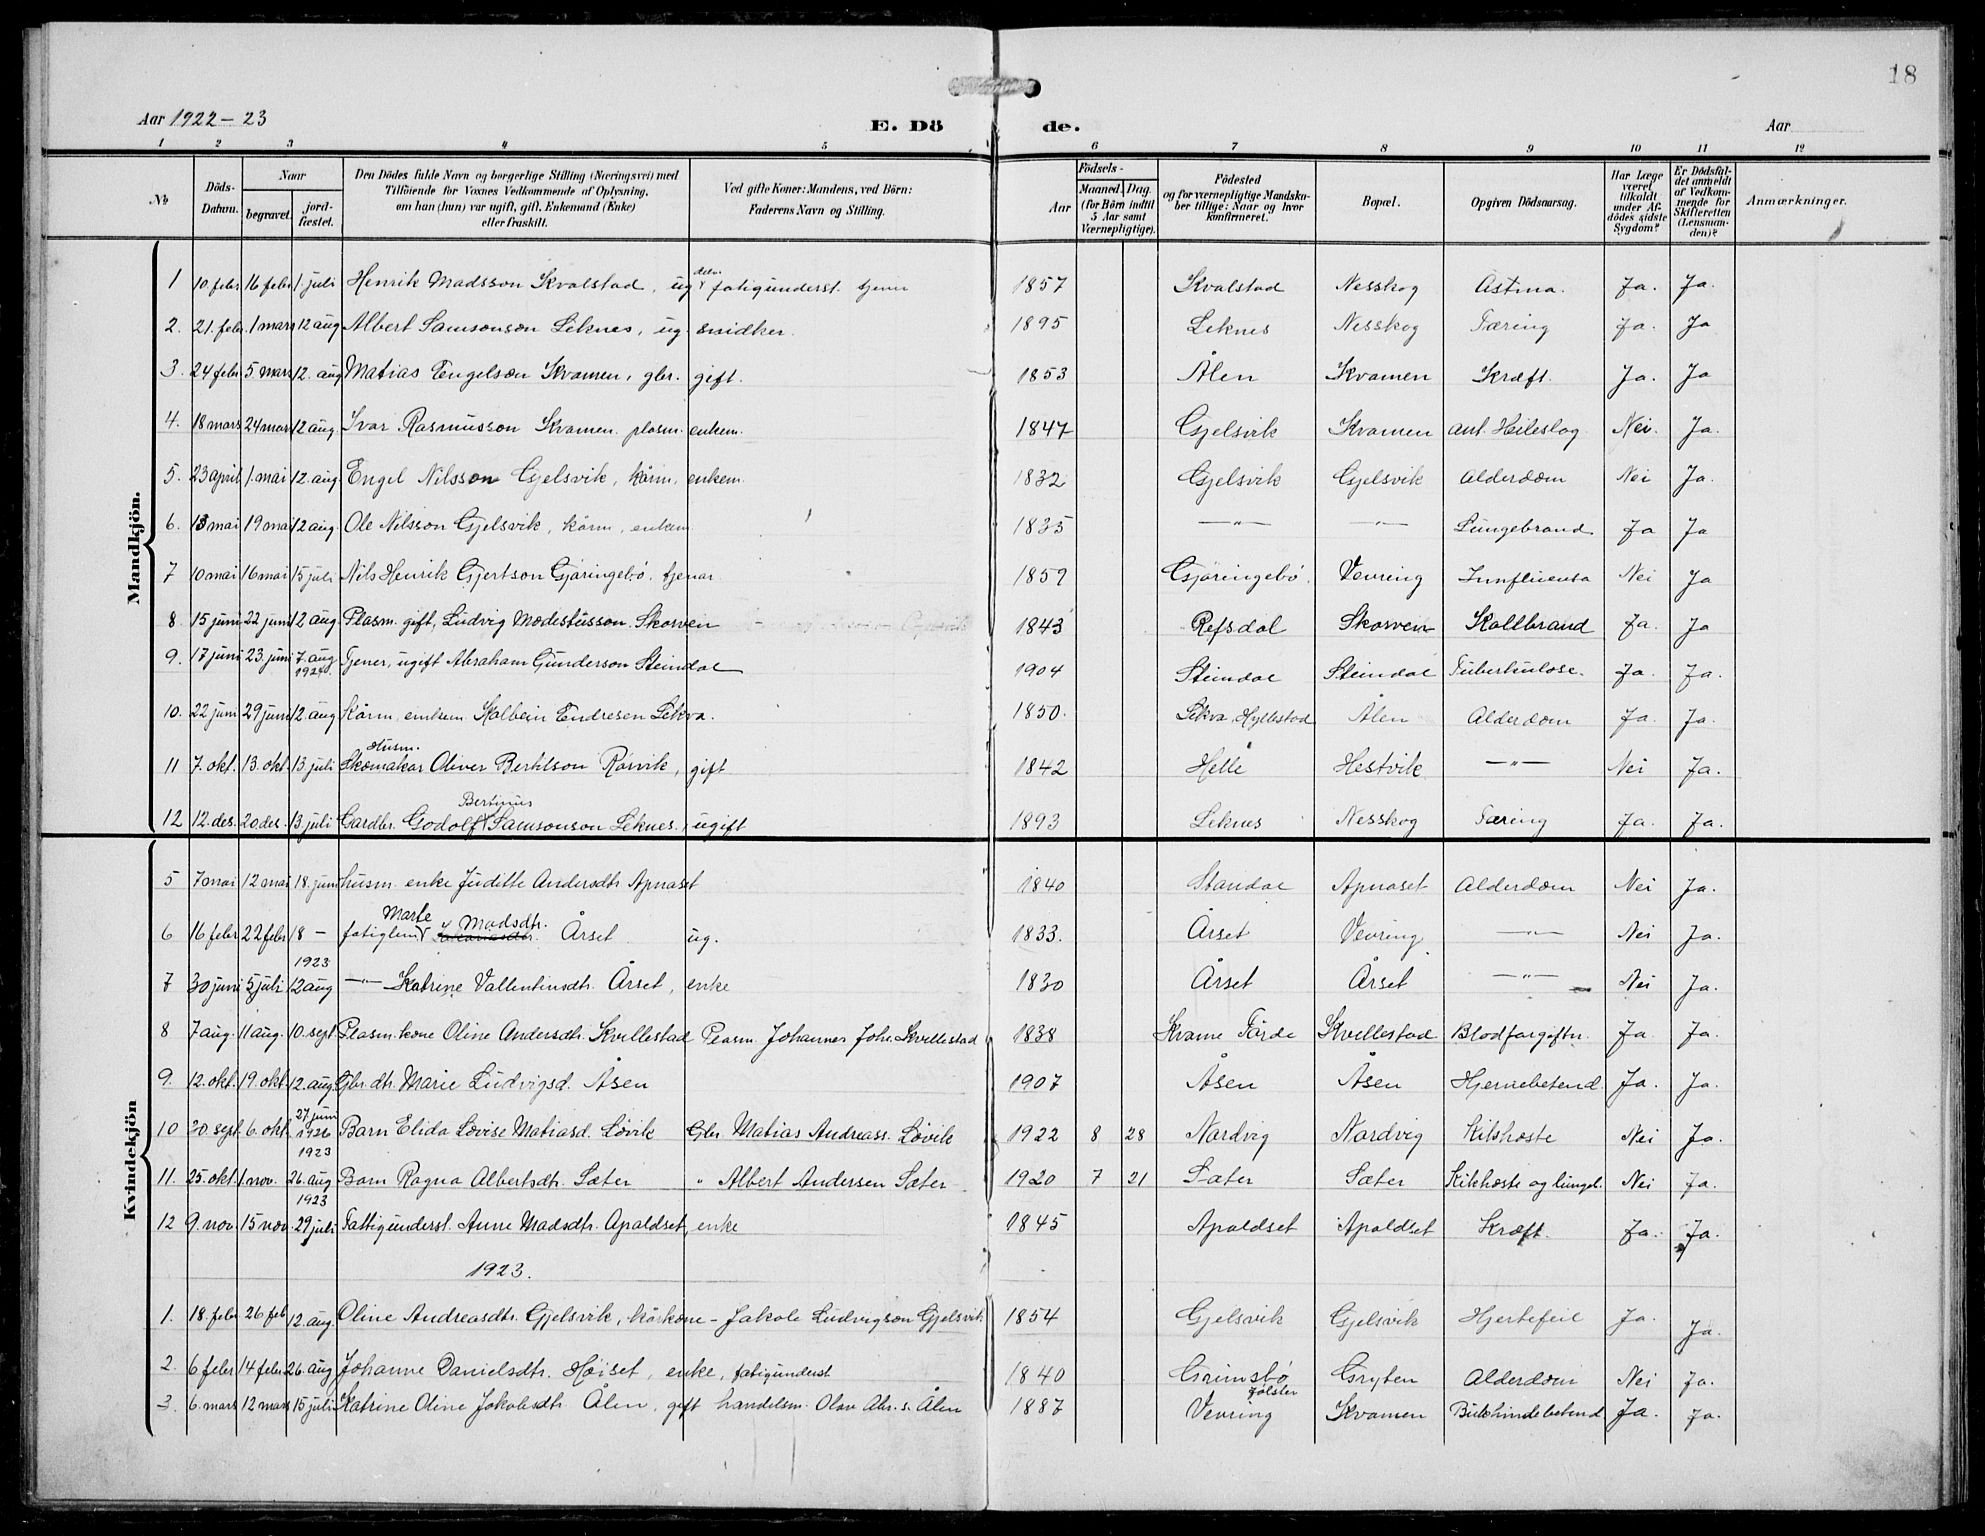 18
Aar 1922-23
E. Dö de.
Aar
1 2 3 4 5 6 7 8 9 10 11 12
No
Döds-Datum.
Naar
begravet.
jord-fæstet.
Den Dödes fulde Navn og borgerlige Stilling (Næringsvei) med
Tilföiende for Voxnes Vedkommende af Oplysning,
om han (hun) var ugift, gift, Enkemand (Enke)
eller fraskilt.
Ved gifte Koner: Mandens, ved Börn:
Faderens Navn og Stilling.
Födsels-
Aar
Maaned. Dag.
(for Börn indtil
5 Aar samt
Værnepligtige).
Födested
og for værnepligtige Mandska-
ber tillige: Naar og hvor
konfirmeret.
Bopæl.
Opgiven Dödsaarsag.
Har Læge
været
tilkaldt
under Af-
dödes sidste
Sygdom?
Er Dödsfal-
det anmeldt
af Vedkom-
mende for
Skifteretten
(Lensman-
den)?
Anmærkninger.
Mandkjön.
1 10 febr 16 febr 1. juli Henrik Madsson Kvalstad, ug. fatigunderst. 1857 Kvalstad Nesskog Astma. Ja. Ja.
2. 21. febr 1 mars 12 aug Albert Samsonson Leknes, ug. snidker. 1895 Leknes Nesskog Tæring Ja. Ja
3. 24 febr 5. mars 12. aug Matias Engelsen Kvamen, gbr. gift. 1853 Ålen Kvamen Kræft. Ja. Ja
4. 18 mars 24 mars 12 aug. Ivar Rasmusson Kvamen. plasm. enkem. 1847 Gjelsvik Kvamen ant. Heileslag. Nei. Ja.
5. 23 april 1. mai 12. aug Engel Nilsson Gjelsvik, kårm. enkem. 1832 Gjelsvik Gjelsvik Alderdom Nei Ja.
6. 13 mai 19 mai 12 aug. Ole Nilsson Gjelsvik, kårm, enkem 1835 —"— —"— Lungebrand Ja Ja
7 10 mai 16 mai 15 juli Nils Henrik Gjertson Gjøringebø. tjenar 1859 Gjøringebø. Vevring Innfluensa Nei Ja
8. 15 juni 22 juni 12 aug. Plasm. gift, Ludvig Modestusson Skorven 1843 Refsdal Skorven Kallbrand Ja. Ja
9. 17 juni 23. juni 7. aug 1924. Tjener, ugift Abraham Gunderson Steindal 1904 Steindal Steindal Tuberkulose. Ja. Ja.
10. 22 juni 29 juni 12. aug Kårm. enkem. Kolbein Endresen Lekva. 1850. Lekva, Hyllestad Ålen Alderdom Ja. Ja.
Husm.
11 7. okt. 13. okt. 13 juli Skomakar Oliver Bertilson Rørvik, gift 1842 Helle Hestvik —"— Nei Ja.
Bertinus
12 12. des. 20 des. 13 juli Gardbr. Godolf Samsonson Leknes, ugift 1893 Leknes Nesskog Tæring Ja. Ja.
Kvindekjön
5 7 mai 12 mai 18. juni husm. enke Juditte Andersdtr Apnaset 1840 Standal Apnaset Alderdom Nei Ja.
Marte Madsdtr.
6 16 febr 22 febr 18 — fatiglem Årset ug. 1833. Årset Vevring —"— Nei Ja.
1923
7 30 juni 5 juli 12 aug —"— Katrine Vallentinsdtr. Årset, enke 1830 Årset Årset —"— Nei Ja.
8 7 aug. 11 aug. 10. sept. Plasm. kone Oline Andersdtr. Kvillestad Plasm. Johannes Joh. Kvillestad 1838 Kvame Førde Kvillestad Blodforgiftn. Ja Ja.
9. 12. okt. 19. okt. 12. aug. Gbr. dtr. Marie Ludvigsd. Åsen 1907 Åsen Åsen Hjernebetend. Ja. Ja.
27 juni
10 30. sept. 6. okt. 1926 Barn Elida Lovise Matiasd. Løvik Gbr. Matias Andreass. Løvik 1922 8 28 Nordvig Nordvig Kikhoste Nei Ja.
1923
11. 25. okt. 1 nov. 26. aug Barn Ragna Albertsdtr. Sæter " Albert Andersen Sæter 1920 7 21 Sæter Sæter Kikhoste og lungeb. Nei Ja.
1923
12 9. nov. 15 nov. 29 juli Fattigunderst. Anne Madsdtr. Apaldset, enke 1845 Apaldset Apaldset Kræft. Ja. Ja.
1923.
1. 18. febr 26 feb 12. aug. Oline Andreasdtr. Gjelsvik, kårkone - Jakob Ludvigson Gjelsvik 1854 Gjelsvik Gjelsvik Hjertefeil Ja. Ja.
2. 6 febr 14 febr 26. aug Johanne Danielsdtr. Høiset, enke, fatigunderst 1840 Grimsbø Jølster Gryten Alderdom Nei Ja.
3. 6. mars 12 mars 15 juli Katrine Oline Jakobsdtr Ålen, gift handelsm. Olav Abr. s. Ålen 1887 Vevring Kvamen Bukhindebetend. Ja. Ja.